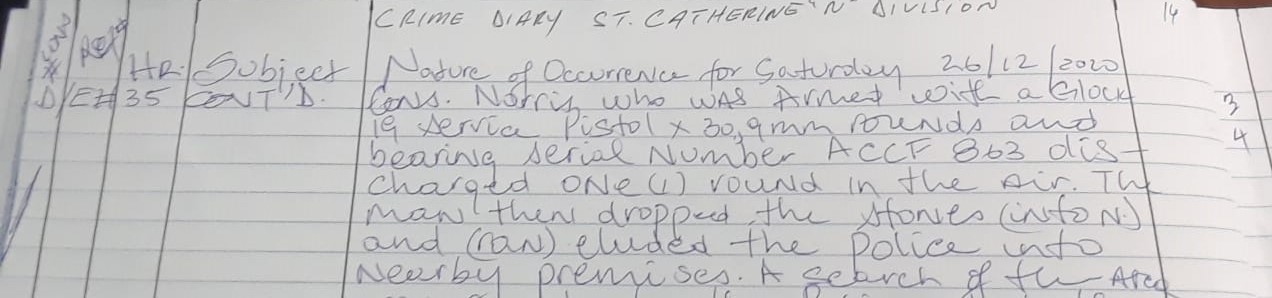 CRIME DIARY ST. CATHERINE "N" DIVISION 14
HR. Subject Nature of Occurrence for Saturday 26/12/2020
D/E# 35 CONT'D. Cons. Norris who was Armed with a Glock 3
19 service Pistol x 30, 9mm rounds and 4
bearing serial Number ACCF 863 dis-
charged ONE (1) round in the Air. The
man then dropped the stones (into N.)
and (ran) eluded the police into
Nearby premises. A search of the Area